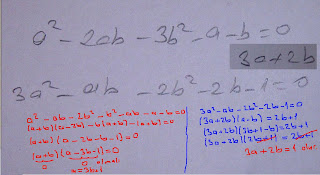 a² - 2ab - 3b² - a - b = 0
3a+2b
3a² - ab - 2b² - 2b - 1 = 0
a² - ab - 2b² - b² - ab - a - b = 0
(a+b)(a-2b) - b(a+b) - (a+b) = 0
(a+b)(a-2b-b-1) = 0
(a+b)(a-3b-1) = 0
0 0 olmalı
a=3b+1
3a² - ab - 2b² - 2b - 1 = 0
(3a+2b)(a-b) = 2b+1
(3a+2b)(3b+1-b) = 2b+1
(3a+2b)(2b+1) = 2b+1
3a+2b=1 olur